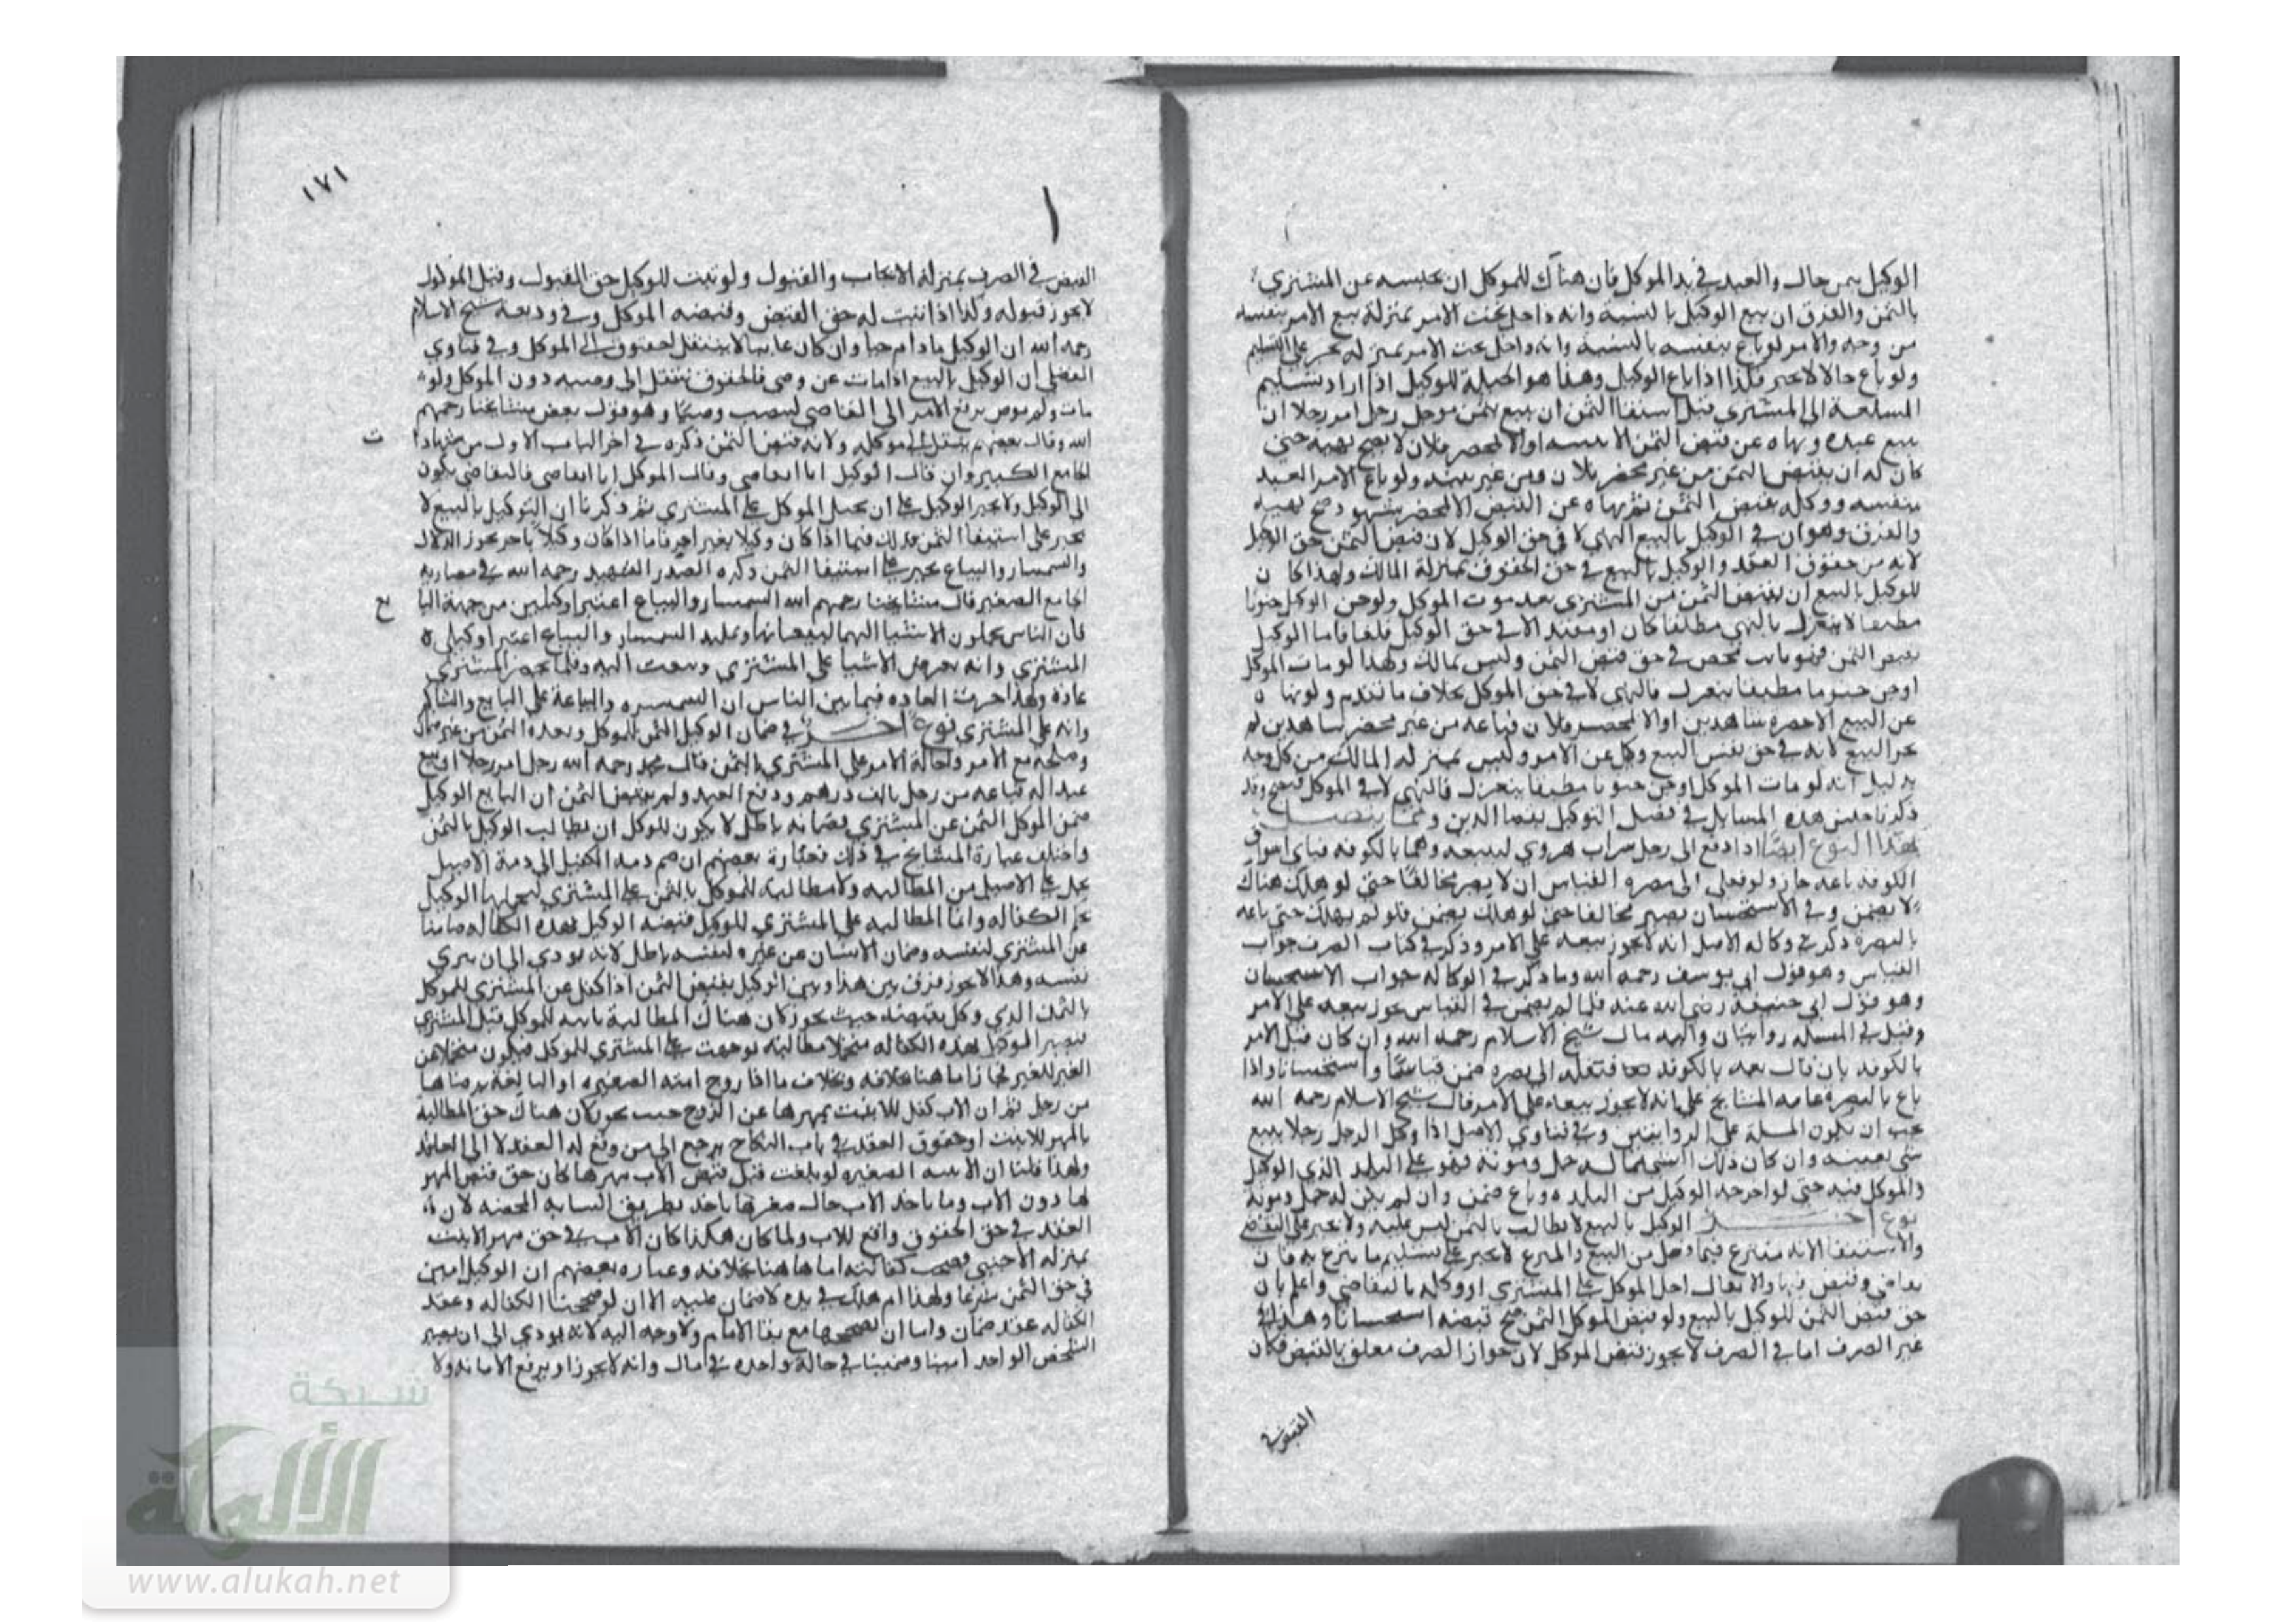 الوكيل بثمن حال والعبد في يد الموكل فان هناك للموكل ان يحبسه عن المشتري
بالثمن والفرق ان بيع الوكيل بالنسية وانه داخل تحت الامر بمنزلة بيع الامر بنفسه
من وجه والامر لو باع بنفسه بالنسية وانه داخل تحت الامر بمنزله يجبر على التسليم
ولو باع حالا لا يجبر فكذا اذا باع الوكيل وهذا هو الحيلة للوكيل اذا اراد تسليم
السلعة الى المشتري قبل استيفا الثمن ان يبيع بثمن موجل رجل امر رجلا ان
يبيع عبده ونهاه عن قبض الثمن الا ببينة او الا بمحضر فلان لا يصح نهيه حتى
كان له ان يقبض الثمن من غير محضر فلان ومن غير بينه ولو باع الامر العبد
بنفسه ووكله بقبض الثمن ثم نهاه عن القبض الا بمحضر شهود صح نهيه
والفرق وهو ان في الوكيل بالبيع النهي لا في حق الوكيل لان قبض الثمن حق الوكيل
لانه من حقوق العقد والوكيل بالبيع في حق الحقوق بمنزلة المالك ولهذا كان
للوكيل بالبيع ان يقبض الثمن من المشتري بعد موت الموكل ولو جن الوكيل جنونا
مطبقا لا ينعزل بالنهي مطلقا كان او مقيد الا في حق الوكيل فلغا فاما الوكيل
بقبض الثمن فهو نايب محض في حق قبض الثمن وليس بمالك ولهذا لو مات الموكل
او جن جنونا مطبقا ينعزل فالنهي لا في حق الموكل بخلاف ما تقدم ولو نهاه
عن البيع الا بحضرة شاهدين او الا بمحضر فلان فباعه من غير محضر شاهدين لم
يجز البيع لانه في حق نفس البيع وكيل عن الامر وليس بمنزله المالك من كل وجه
بدليل انه لو مات الموكل او جن جنونا مطبقا ينعزل فالنهي لا في الموكل فصح وقد
ذكرنا جنس هذه المسايل في فصل التوكيل بقضا الدين ومما يتصل
بهذا النوع ايضا اذا دفع الى رجل جراب هروي ليبيعه وهما بالكوفه فباى اسواق
الكوفه باعه جاز ولو نقل الى بصره القياس ان لا يصير مخالفا حتى لو هلك هناك
لا يضمن وفي الاستحسان يصير مخالفا حتى لو هلك يضمن فلو لم يهلك حتى باعه
بالبصرة ذكر في وكاله الاصل انه لا يجوز بيعه على الامر وذكر في كتاب الصرف جواب
القياس وهو قول ابي يوسف رحمه الله وما ذكر في الوكاله جواب الاستحسان
وهو قول ابي حنيفة رضي الله عنه فلما لم يضمن في القياس يجوز بيعه على الامر
وقيل في المسله روايتان واليه مال شيخ الاسلام رحمه الله وان كان قبل الامر
بالكوفه بان قال بعه بالكوفه فنقله الى بصره ضمن قياسا واستحسانا واذا
باع بالبصره عامه المشايخ على انه لا يجوز بيعه على الامر قال شيخ الاسلام رحمه الله
يجب ان تكون المسلة على الروايتين وفي فتاوي الاصل اذا وكل الرجل رجلا ببيع
شي بعينه وان كان ذلك الشي مما له حمل ومونه فهو على البلد الذي الوكيل
والموكل فيه حتى لو اخرجه الوكيل من البلده وباع ضمن وان لم يكن له حمل ومونة
نوع اخر الوكيل بالبيع لا يطالب بالثمن ليس عليه ولا يجبر على التقاضي
والاستيفا لانه متبرع فيما فعل من البيع والمتبرع لا يجبر على تسليم ما تبرع به فان
تقاضى وقبض فبها والا يقال احل الموكل على المشتري او وكله بالتقاضي واعلم بان
حق قبض الثمن للوكيل بالبيع ولو قبض الموكل الثمن صح قبضه استحسانا وهذا في
غير الصرف اما في الصرف لا يجوز قبض الموكل لان جواز الصرف معلق بالقبض فكان
القبض في
١٧١
القبض في الصرف بمنزلة الايجاب والقبول ولو ثبت للوكيل حق القبول وقبل الموكل
لا يجوز قبوله وكذا اذا ثبت له حق القبض وقبضه الموكل وفي وديعة شيخ الاسلام
رحمه الله ان الوكيل ما دام حيا وان كان غايبا لا ينتقل الحقوق الى الموكل وفي فتاوي
الفضلي ان الوكيل بالبيع اذا مات عن وصي فالحقوق تنتقل الى وصيه دون الموكل ولو
مات ولم يوص يرفع الامر الى القاضي لينصب وصيا وهو قول بعض مشايخنا رحمهم
الله وقال بعضهم ينتقل الى موكله ولانه قبض الثمن ذكره في اخر الباب الاول من
الجامع الكبير وان قال الوكيل انا اتقاضى وقال الموكل انا اتقاضى فالتقاضي يكون
الى الوكيل ولا يجبر الوكيل على ان يحيل الموكل على المشتري ثم ذكرنا ان التوكيل بالبيع لا
يجبر على استيفا الثمن فذلك فيما اذا كان وكيلا بغير اجر فاما اذا كان وكيلا باجر نحو الدلال
والسمسار والبياع يجبر على استيفا الثمن ذكره الصدر الشهيد رحمه الله في مضاربه
الجامع الصغير قال مشايخنا رحمهم الله السمسار والبياع اعتبرا وكيلين من جهة
فان الناس يحملون الاشيا اليهما ليبيعانها السمسار والبياع اعتبرا وكيلي
المشتري وانه يعرض الاشيا على المشتري وبعث اليه وقلما يحضر المشتري
عاده ولهذا جرت العاده فيما بين الناس ان السمسره والبياعة على البايع
وانه على المشتري نوع اخر في ضمان الوكيل الثمن للموكل ونقده الثمن من غير ضمان
وصلحه مع الامر واحالة الامر على المشتري بالثمن قال محمد رحمه الله رجل امر رجلا ان يبيع
عبدا له فباعه من رجل بالف درهم ودفع العبد ولم يقبض الثمن ان البايع الوكيل
ضمن الموكل الثمن عن المشتري فضمانه باطل لا يكون للموكل ان يطالب الوكيل بالثمن
واختلف عبارة المشايخ في ذلك فعبارة بعضهم ان ضم ذمه الكفيل الى ذمة الاصيل
على الاصيل من المطالبه ولا مطالبة للموكل بالثمن على المشتري الوكيل
الكفاله وانما المطالبه على المشتري للوكيل الوكيل بهذه الكفاله ضامنا
عن المشتري لنفسه وضمان الانسان عن غيره لنفسه باطل لانه يودي الى ان يبري
نفسه وهذا لا يجوز فرق بين هذا وبين الوكيل بقبض الثمن اذا كفل عن المشتري للموكل
بالثمن الذي وكل بقبضه حيث يجوز كان هناك المطالبة ثابته للموكل قبل المشتري
فيصير الوكيل بهذه الكفاله متحملا مطالبه توجهت على المشتري للموكل فيكون متحملا عن
الغير للغير فجاز اما هنا بخلافه وبخلاف ما اذا زوج ابنته الصغيره او البالغة برضاها
من رجل ثم ان الاب كفل للابنت بمهرها عن الزوج حيث يجوز كان هناك حق المطالبة
بالمهر للابنت وحقوق العقد في باب النكاح يرجع الى من وقع له العقد لا الى العاقد
ولهذا قلنا ان الابنه الصغيره لو بلغت قبل قبض الاب مهرها كان حق قبض المهر
لها دون الاب وما ياخذ الاب حال صغرها ياخذ بطريق النيابه المحضه لان
العقد في حق الحقوق واقع للاب ولما كان هكذا كان الاب في حق مهر الابنت
بمنزله الاجنبي فصحت كفالته اما هاهنا بخلافه وعباره بعضهم ان الوكيل امين
في حق الثمن شرعا ولهذا لو هلك في يده لا ضمان عليه الا ان لو صححنا الكفاله وعقد
الكفاله عقد ضمان واما ان نصححها مع بقا الامانه ولا وجه اليه لانه يودي الى ان يصير
الشخص الواحد امينا وضمينا في حالة واحده في مال وانه لا يجوز او يرفع الامانه ولا
شبكة
الألوكة
www.alukah.net